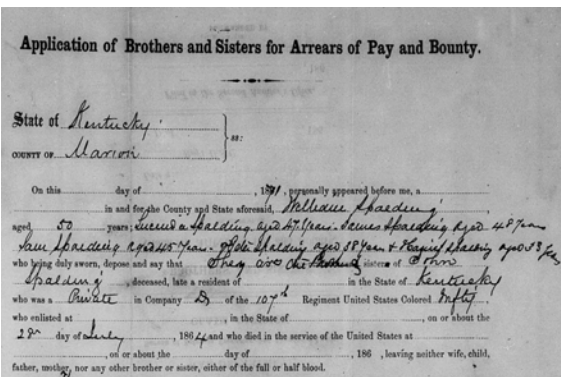 Application of Brothers and Sisters for Arrears of Pay and Bounty.
State of Kentucky
COUNTY OF Marion
ss:
On this day of , 1871, personally appeared before me, a
in and for the County and State aforesaid, William Spalding
aged 50 years; Lucinda Spalding aged 47 Years. James Spalding aged 48 Years
Jane Spalding aged 45 Years. Spalding aged 38 Years & Spalding aged 33 Years
who being duly sworn, depose and say that They are the Brothers sisters of John
Spalding, deceased, late a resident of in the State of Kentucky
who was a Private in Company D of the 107th Regiment United States Colored Infty,
who enlisted at , in the State of , on or about the
28" day of July, 1864 and who died in the service of the United States at
, on or about the day of , 186 , leaving neither wife, child,
father, mother, nor any other brother or sister, either of the full or half blood.